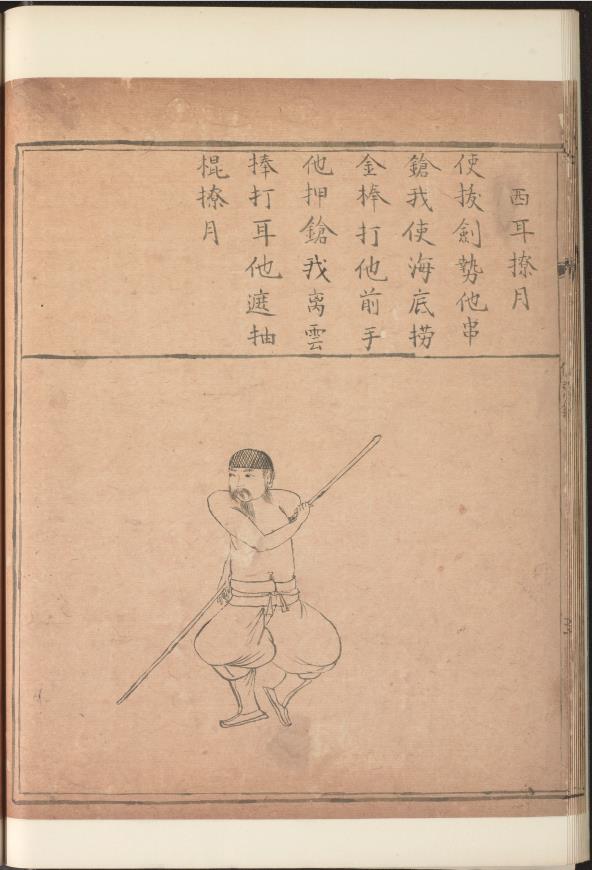 西耳撩月
使拔劍勢他串
鎗我使海底撈
金棒打他前手
他押鎗我离雲
捧打耳他遮抽
棍撩月